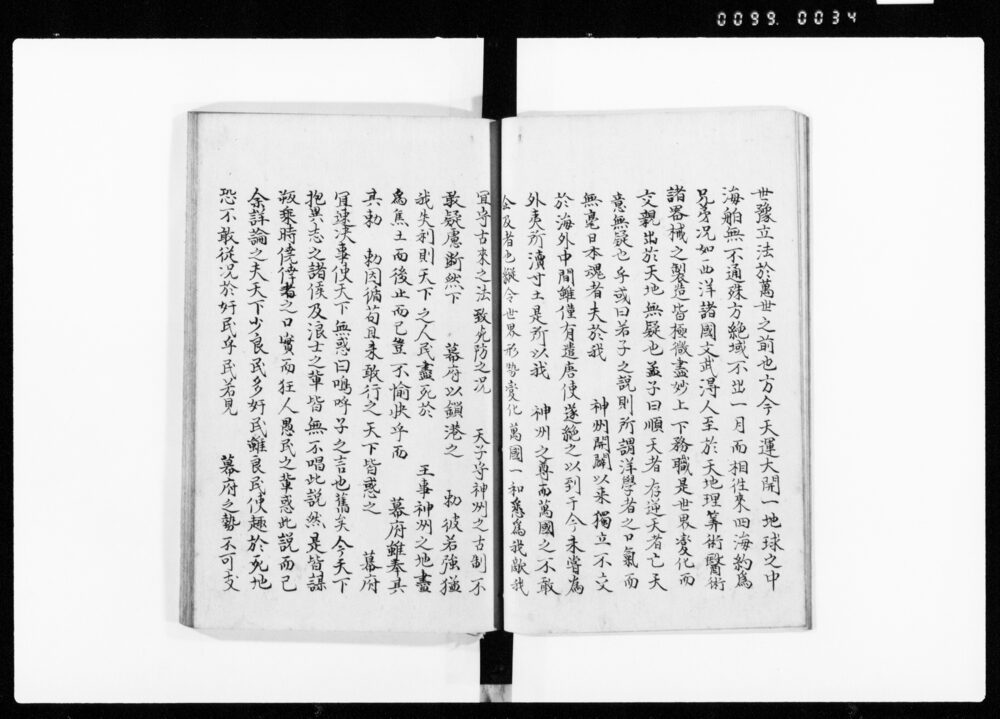 0099.0034
世豫立法於萬世之前也方今天運大開一地球之中
海舶無不通殊方絶域不出一月而相徃來四海約爲
兄弟况如西洋諸國文武得人至於天地理筭術醫術
諸器械之製造皆極微盡妙上下務職是世界変化而
文親出於天地無疑也孟子曰順天者存逆天者亡天
意無疑也乎或曰若子之説則所謂洋學者之口氣而
無毫日本魂者夫於我　神州開闢以来獨立不交
於海外中間雖僅有遣唐使遂絶之以到于今未嘗爲
外夷所瀆寸土是所以我　神州之尊而萬國之不敢
及者也縱令世界形勢変化萬國一和悉爲我敵我
宜守古来之法　致死防之况　天子守神州之古制不
敢疑慮断然下　幕府以鎖港之　勅彼若強猛
我失利則天下之人民盡死於　王事神州之地盡
爲焦土而後止而已豈不愉快乎而　幕府雖奉其
其勅　勅因循苟且未敢行之天下皆惑之　幕府
宜速决事使天下無惑曰嗚呼子之言也舊矣今天下
抱異志之諸侯及浪士之輩皆無不唱此説然是皆謀
叛乘時僥倖者之口實而狂人愚民之輩惑此説而已
余詳論之夫天下少良民多奸民雖良民使趣於死地
恐不敢從况於奸民乎民若見　幕府之勢不可支